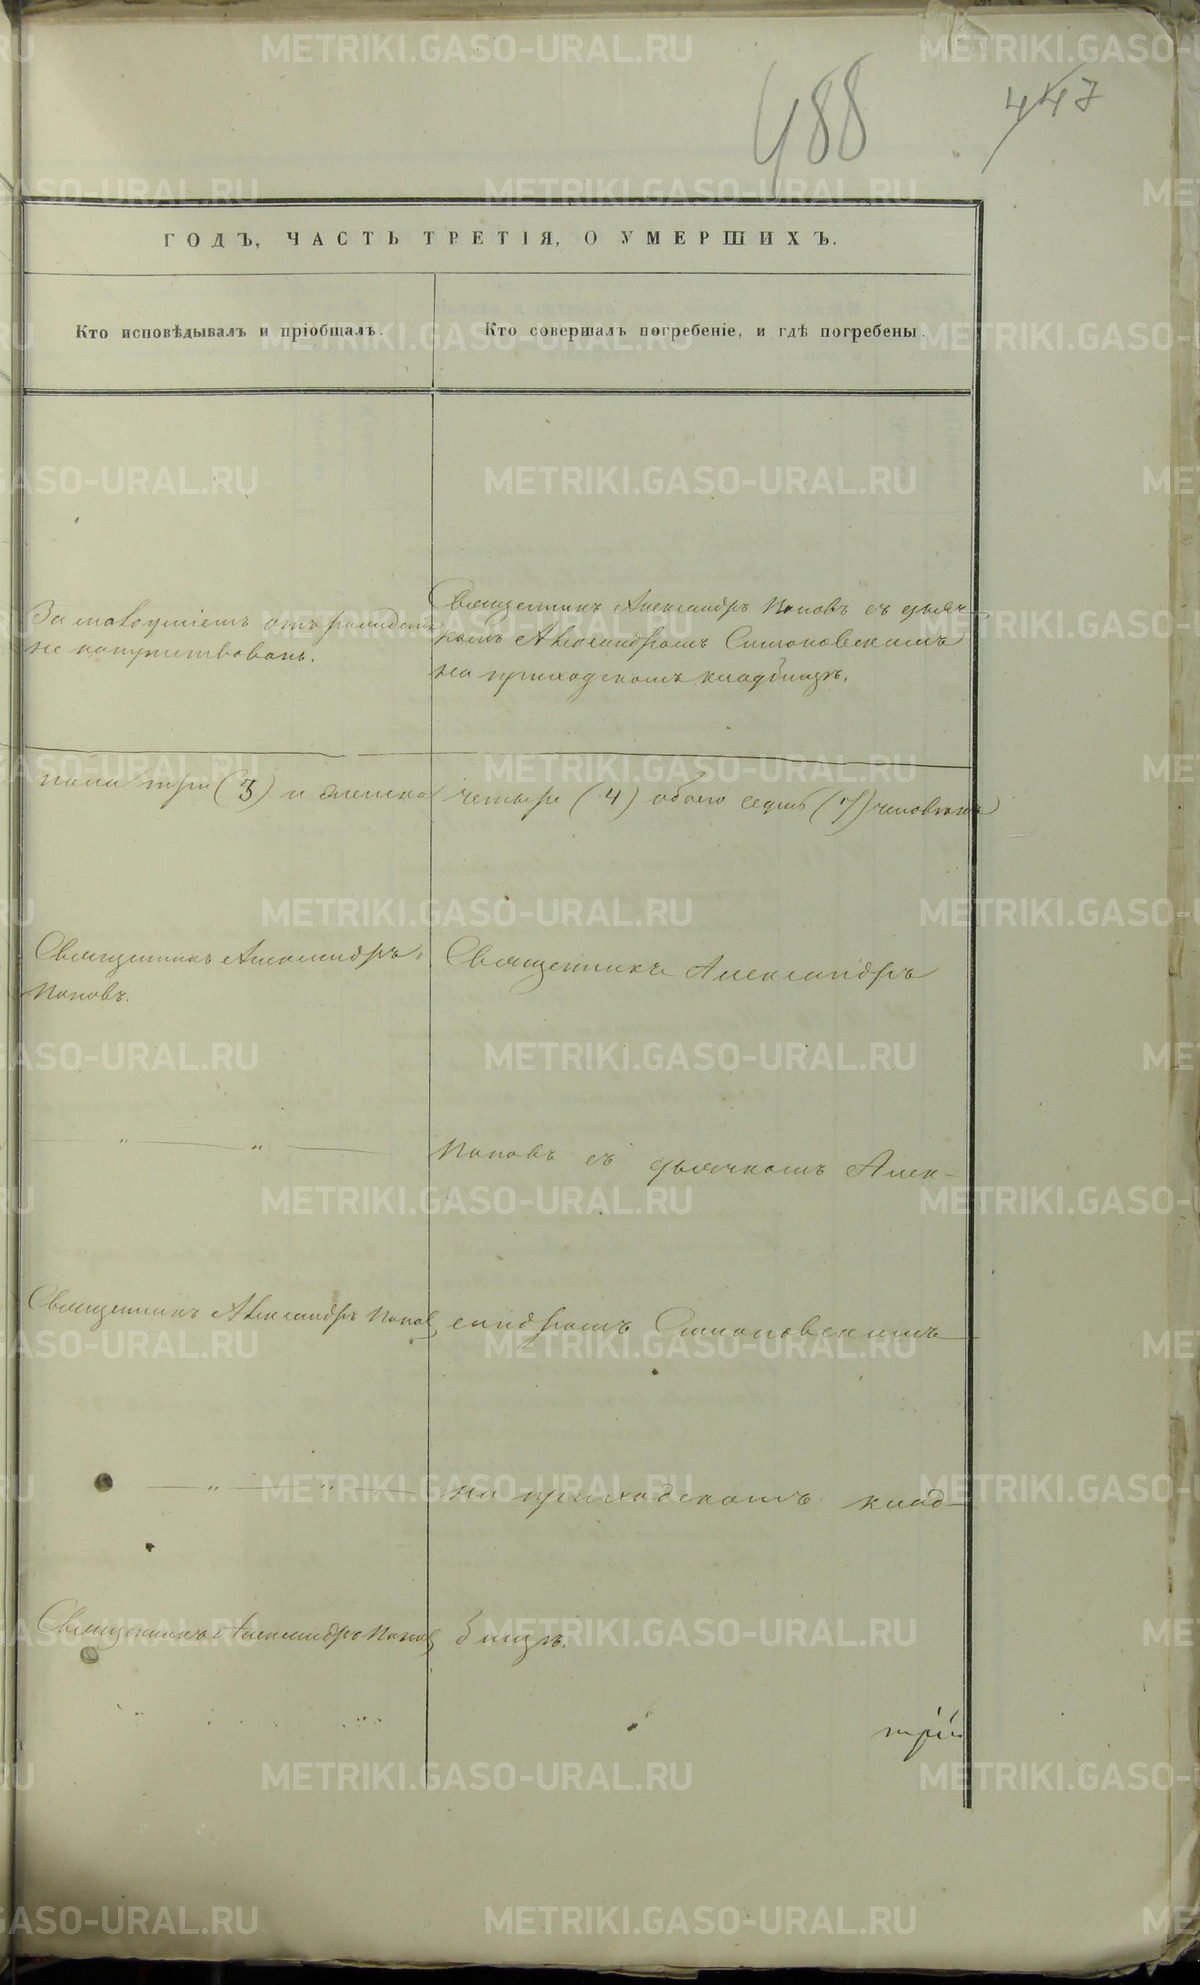 488
447
ГОДЪ, ЧАСТЬ ТРЕТІЯ, О УМЕРШИХЪ.
Кто исповѣдывалъ и пріобщалъ.
Кто совершалъ погребеніе, и гдѣ погребены.
За
не напутствованъ.
Священникъ Александръ Поповъ съ дьяч
комъ Александромъ Симоновскимъ
на приходскомъ кладбищѣ.
пола три (3) и женска четыре (4) обоего седмь (7) человѣкъ
Священникъ Александръ
Поповъ.
Священникъ Александръ
Поповъ съ дьячкомъ Алек-
Священникъ Александръ Попов
сандромъ Симоновскимъ
на приходскомъ клад-
Священникъ Александръ Попов
бищѣ.
METRIKI.GASO-URAL.RU